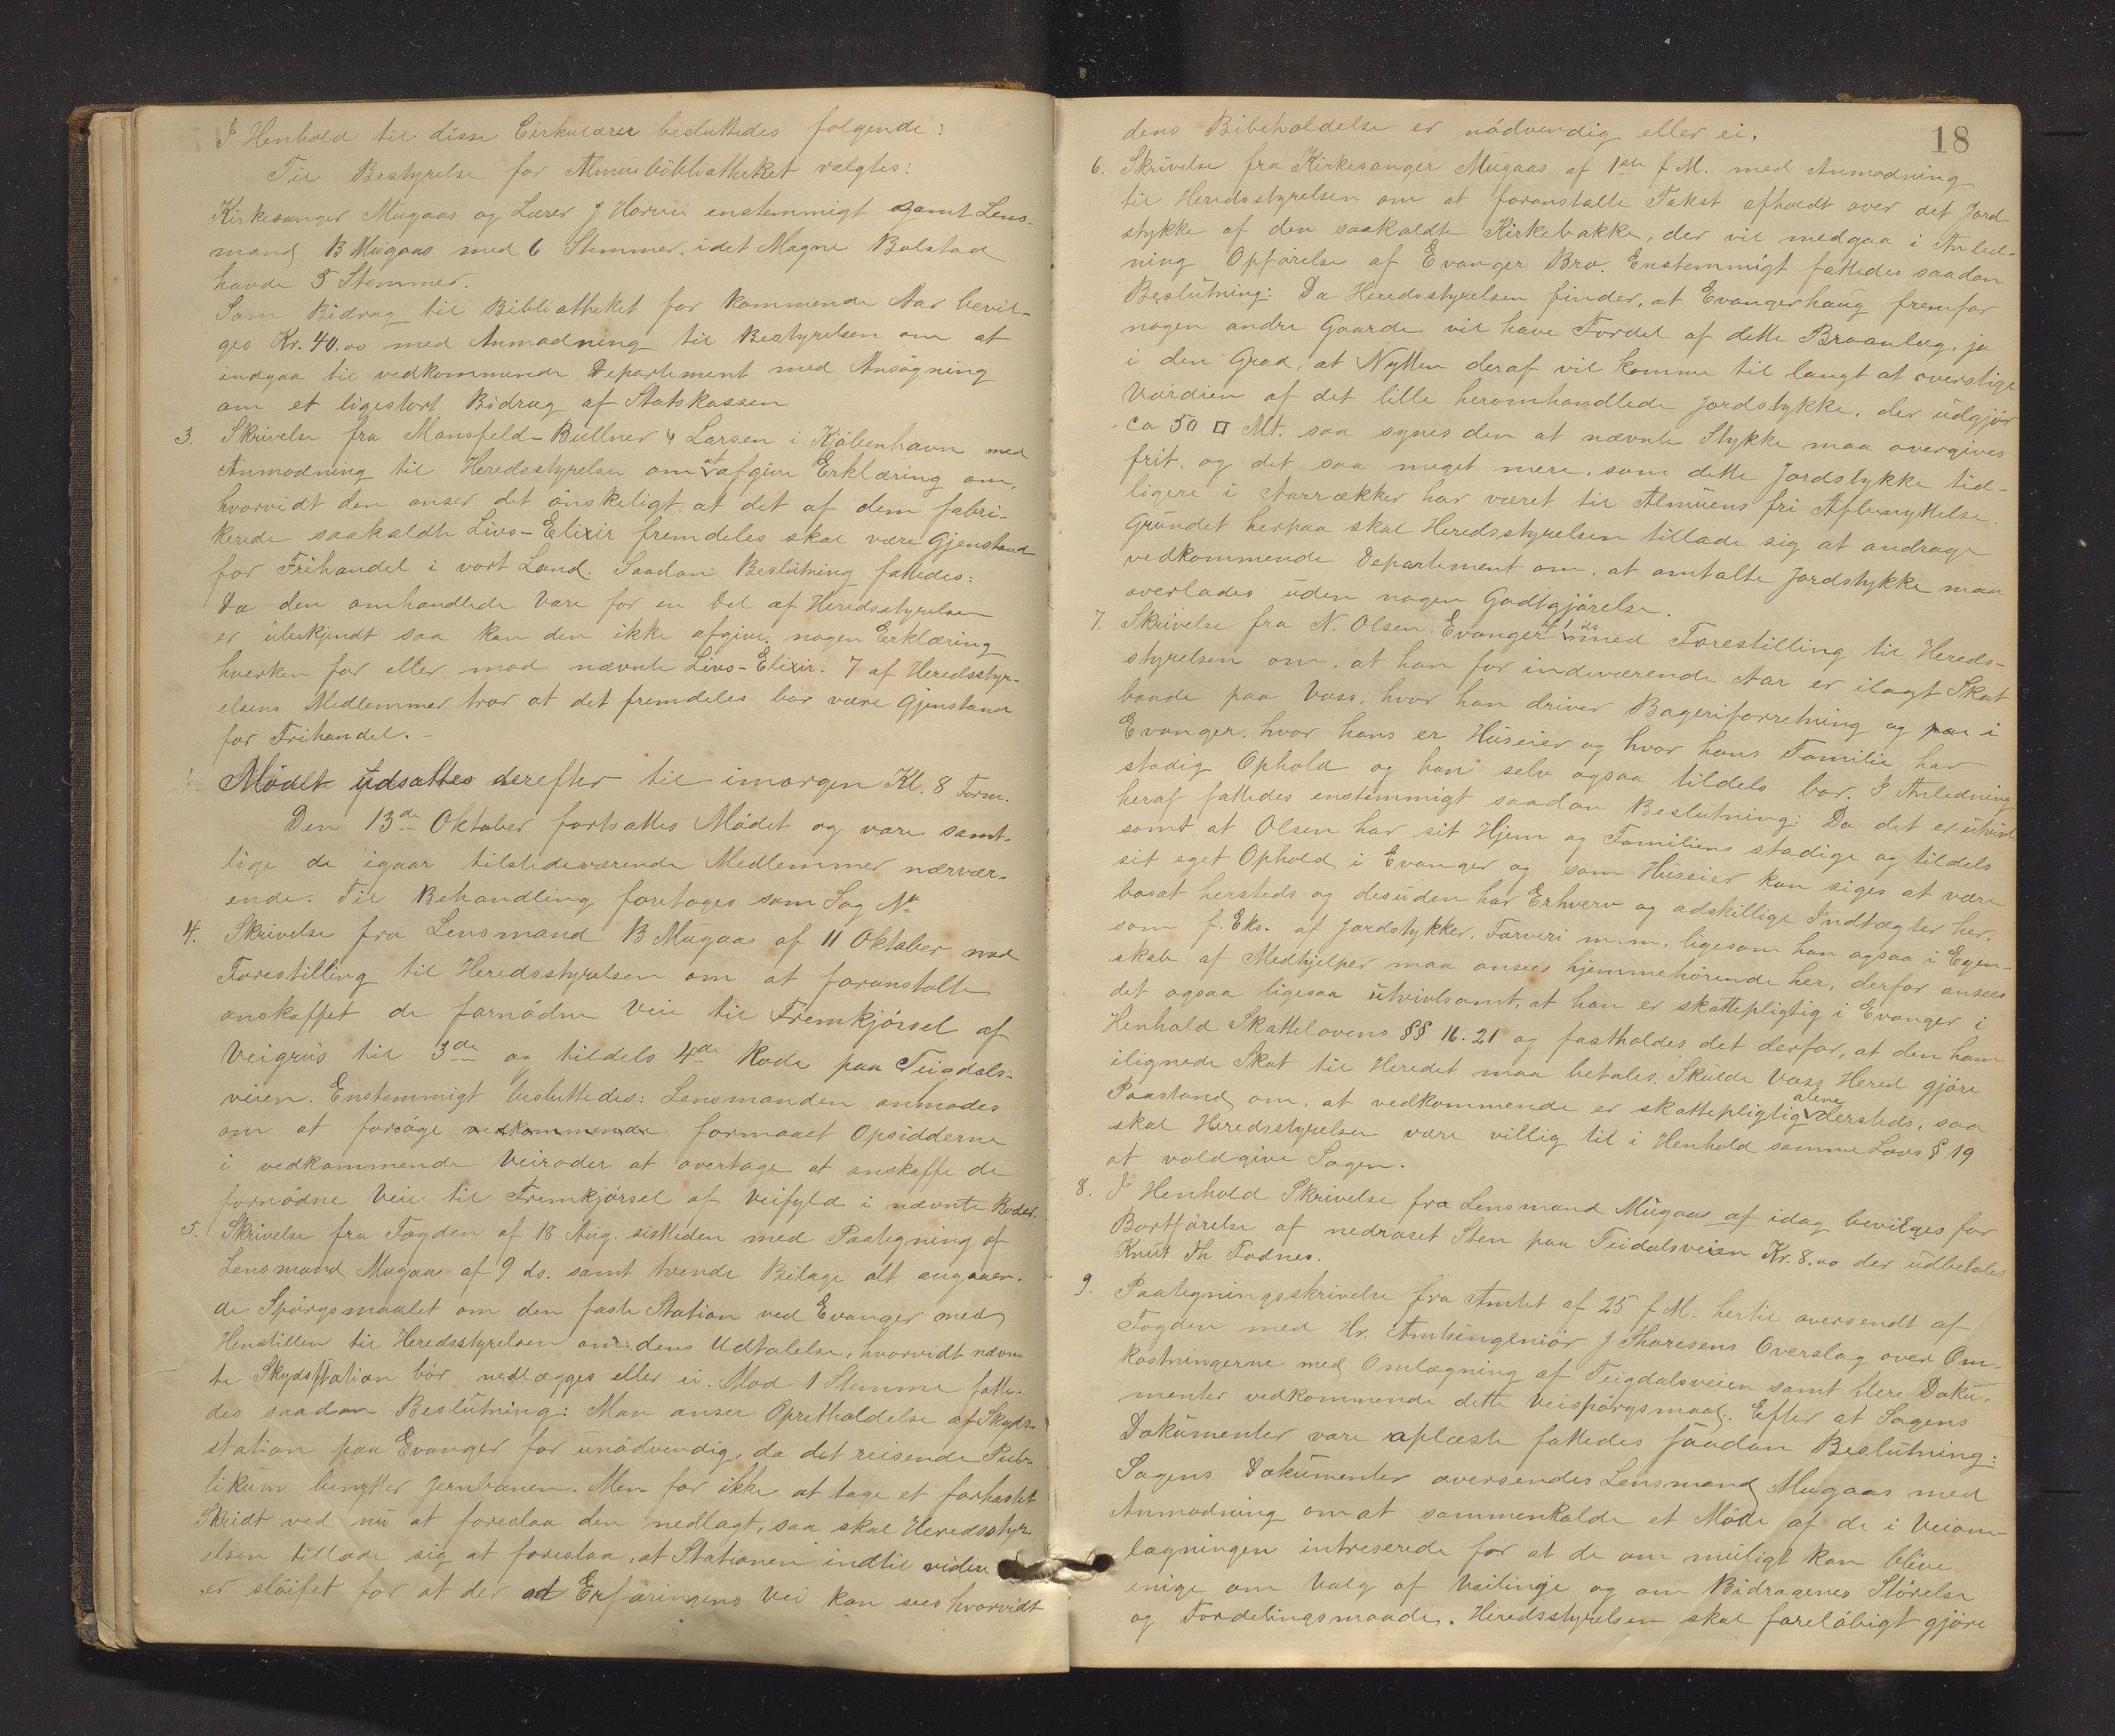 I Henhold til disse Cirkulærer besluttedes følgende:
Til Bestyrelse for Almuebibliotheket valgtes:
Kirkesanger Mugaas og Lærer J Horvei enstemmigt samt Lens-
mand B Mugaas med 6 Stemmer, idet Magne Bolstad
havde 5 Stemmer.
Som Bidrag til Bibliotheket for kommende Aar bevil-
ges Kr. 40.00 med Anmodning til Bestyrelsen om at
indgaa til vedkommende Departement med Ansøgning
om et ligestort Bidrag af Statskassen
3. Skrivelse fra Mansfeld-Bullner & Larsen i Kjøbenhavn med
Anmodning til Heredsstyrelsen om at afgive Erklæring om,
hvorvidt den anser det ønskeligt at det af dem fabri-
kerede saakaldte Livs-Elixir fremdeles skal være Gjenstand
for Frihandel i vort Land. Saadan Beslutning fattedes:
Da den omhandlede Vare for en Del af Heredsstyrelsen
er ubekjendt saa kan den ikke afgive nogen Erklæring
hverken for eller mod nævnte Livs-Elixir. 7 af Heredsstyr-
elsens Medlemmer tror at det fremdeles bør være Gjenstand
for Frihandel.-
Mødet udsattes derefter til imorgen Kl. 8 Form.
Den 13de Oktober fortsattes Mødet og vare samt-
lige de igaar tilstedeværende Medlemmer nærvær-
ende. Til Behandling foretoges som Sag No
4. Skrivelse fra Lensmand B Mugaas af 11 Oktober med
Forestilling til Heredsstyrelsen om at foranstalte
anskaffet de fornødne Veie til Fremkjørsel af
Veigrus til 3de og tildels 4de Rode paa Teigdals-
veien. Enstemmigt besluttedes: Lensmanden anmodes
om at forsøge vedkommende formaaet Opsidderne
i vedkommende Veiroder at overtage at anskaffe de
fornødne Veie til Fremkjørsel af Veifyld i nævnte Roder.
5. Skrivelse fra Fogden af 18 Aug. sistleden med Paategning af
Lensmand Mugaas af 9 ds. samt tvende Bilage alt angaaen-
de Spørgsmaalet om den faste Station ved Evanger med
Henstillen til Heredsstyrelsen om dens Udtalelse, hvorvidt nævn
te Skydsstation bør nedlægges eller ei. Mod 1 Stemme fatte-
des saadan Beslutning: Man anser Opretholdelse af Skyds-
station paa Evanger for unødvendig, da det reisende Pub-
likum benytter Jernbanen. Men for ikke at tage et forhastet
Skridt ved nu at foreslaa den nedlagt, saa skal Heredsstyr
elsen tillade sig at foreslaa, at Stationen indtil videre
er sløifet for at der ad Erfaringens Vei kan sees hvorvidt
18
dens Bibeholdelse er nødvendig eller ei.
6. Skrivelse fra Kirkesanger Mugaas af 1ste f M. med Anmodning
til Heredsstyrelsen om at foranstalte Takst afholdt over det Jord-
stykke af den saakaldte Kirkebakke, der vil medgaa i Anled-
ning Opførelse af Evanger Bro. Enstemmigt fattedes saadan
Beslutning: Da Heredsstyrelsen finder, at Evangerhaug fremfor
nogen andre Gaarde vil have Fordel af dette Broanlæg, ja
i den Grad, at Nytten deraf vil komme til langt at overstige
Værdien af det lille heromhandlede Jordstykke, der udgjør
ca 50 □ Mt. saa synes den at nævnte Stykke maa overgives
frit, og det saa meget mere, som dette Jordstykke tid-
ligere i Aarrækker har været til Almuens fri Afbenyttelse.
Grundet herpaa skal Heredsstyrelsen tillade sig at andrage
vedkommende Departement om, at omtalte Jordstykke maa
overlades uden nogen Godtgjørelse.
7. Skrivelse fra N. Olsen Evanger af 1 ds med Forestilling til Hereds-
styrelsen om, at han for indeværende Aar er ilagt Skat
baade paa Voss, hvor han driver Bageriforretning og paa i
Evanger, hvor hans er Huseier og hvor hans Familie har
stadig Ophold og han selv ogsaa tildels bor. I Anledning
heraf fattedes enstemmigt saadan Beslutning: Da det er utvivl
somt, at Olsen har sit Hjem og Familiens stadige og tildels
sit eget Ophold i Evanger og som Huseier kan siges at være
bosat hersteds og desuden har Erhverv og adskillige Indtægter her,
som f. Eks. af Jordstykker, Farveri m.m. ligesom han ogsaa i Egen-
skab af Medhjelper maa ansees hjemmehørende her, derfor ansees
det ogsaa ligesaa utvivlsomt, at han er skattepligtig i Evanger i
Henhold Skattelovens §§ 16. 21 og fastholdes det derfor, at den ham
ilignede Skat til Heredet maa betales. Skulde Voss Hered gjøre
Paastand om, at vedkommende er skattepligtig alene dersteds, saa
skal Heredsstyrelsen være villig til i Henhold samme Lovs § 19
at voldgive Sagen.
8. I Henhold Skrivelse fra Lensmand Mugaas af idag bevilges for
Bortførelse af nedraset Sten paa Teidalsveien Kr. 8.00 der udbetales
Knut Th Fodnes.
9. Paategningsskrivelse fra Amtet af 25 f M. hertil oversendt af
Fogden med Hr. Amtsingeniør J Thoresens Overslag over Om-
kostningerne med Omlægning af Teigdalsveien samt flere Doku-
menter vedkommende dette Veispørgsmaal. Efter at Sagens
Dokumenter vare oplæste fattedes saadan Beslutning:
Sagens Dokumenter oversendes Lensmand Mugaas med
Anmodning om at sammenkalde et Møde af de i Veiom-
lægningen intreserede for at de om muligt kan blive
enige om Valg af Veilinje og om Bidragenes Størelse
og Fordelingsmaade. Heredsstyrelsen skal foreløbigt gjøre